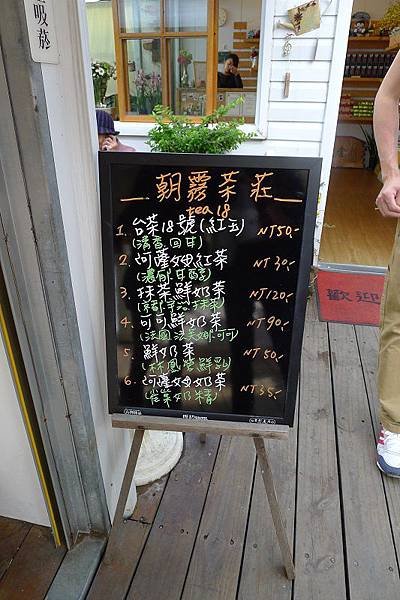 吸菸
朝霧茶莊
tea 18
1. 台茶18號(紅玉) NT50.-
(清香.回甘)
2. 阿薩姆紅茶 NT 30.-
(濃郁.甘醇)
3. 抹茶鮮奶茶 NT120.-
4. 可可鮮奶茶 NT 90.-
(法國法芙娜.可可)
5. 鮮奶茶 NT 50.-
(林鳳營鮮乳)
6. 阿薩姆奶茶 NT 35.-
歡迎